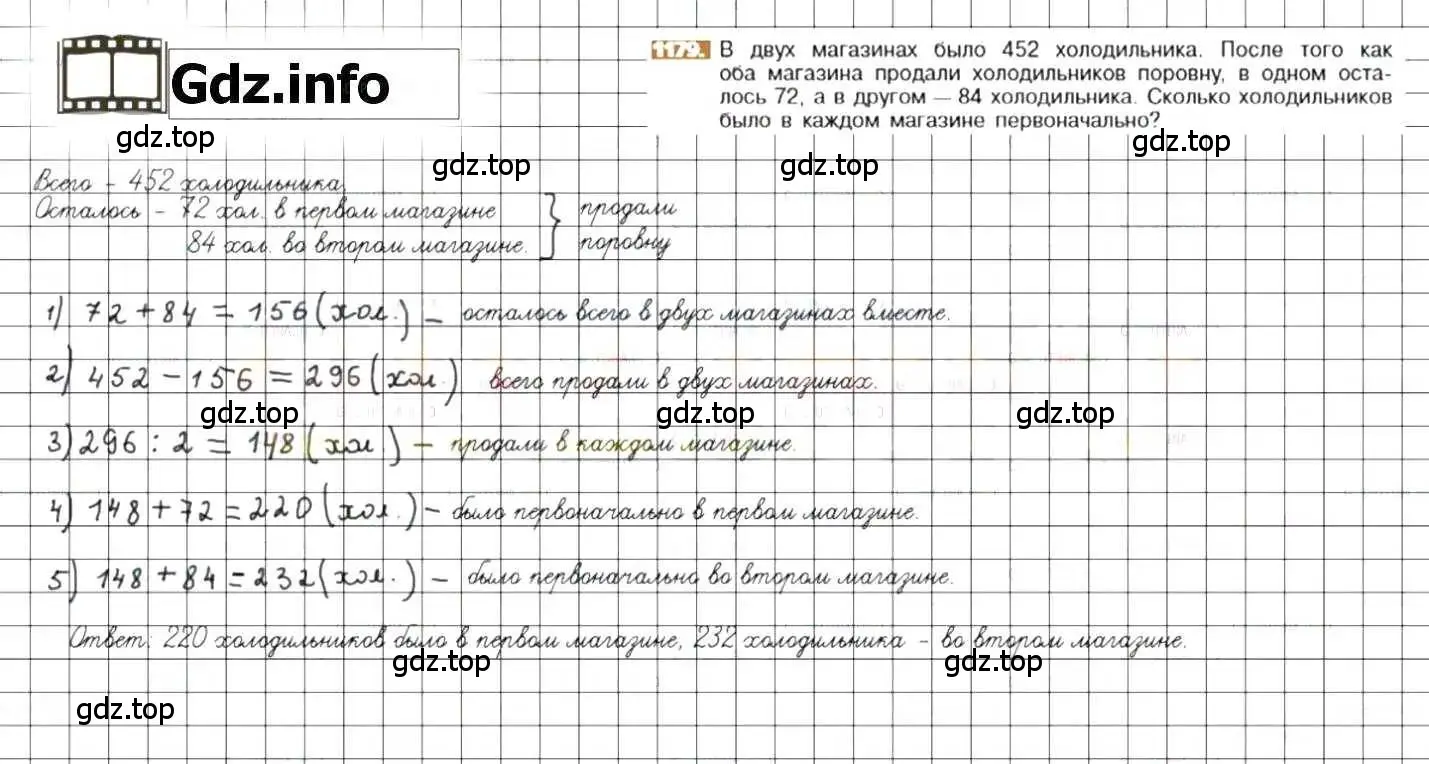 Gdz.info
1179. В двух магазинах было 452 холодильника. После того как
оба магазина продали холодильников поровну, в одном оста-
лось 72, а в другом — 84 холодильника. Сколько холодильников
было в каждом магазине первоначально?
gdz.top
gdz.top
gdz.top
gdz.top
Всего - 452 холодильника
Осталось - 72 хол. в первом магазине } продали
84 хол. во втором магазине. поровну
1) 72 + 84 = 156 (хол.) - осталось всего в двух магазинах вместе.
2) 452 - 156 = 296 (хол.) всего продали в двух магазинах.
gdz.top
gdz.top
gdz.top
3) 296 : 2 = 148 (хол.) - продали в каждом магазине.
4) 148 + 72 = 220 (хол.) - было первоначально в первом магазине.
5) 148 + 84 = 232 (хол.) - было первоначально во втором магазине.
Ответ: 220 холодильников было в первом магазине, 232 холодильника - во втором магазине.
gdz.top
gdz.top
gdz.top